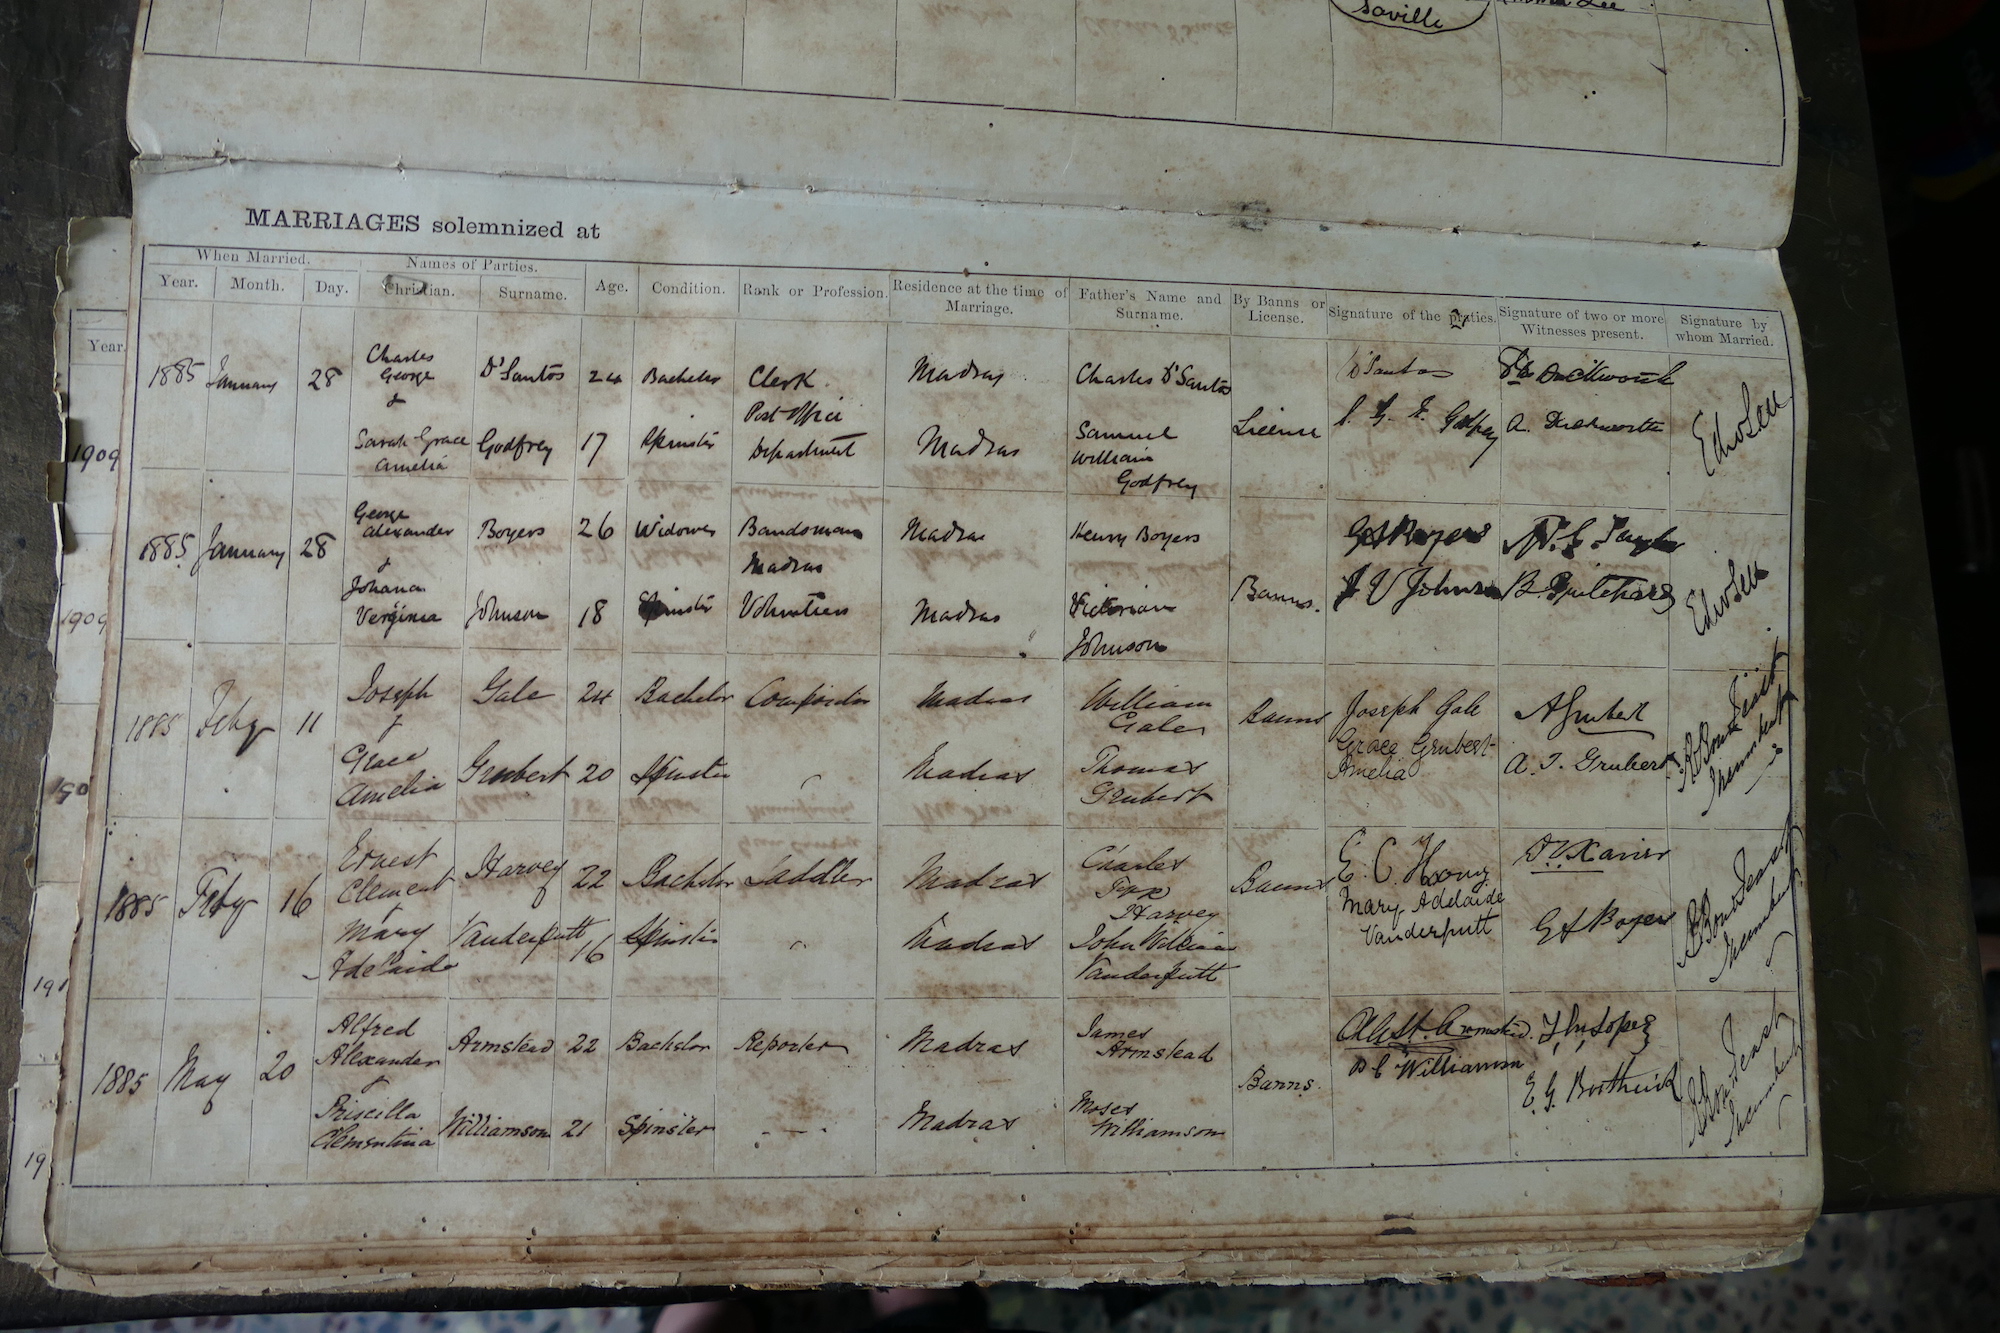 Saville
MARRIAGES solemnized at
When Married. Names of Parties.
Year. Month. Day. Christian. Surname. Age. Condition. Rank or Profession. Residence at the time of Marriage. Father's Name and Surname. By Banns or License. Signature of the parties. Signature of two or more Witnesses present. Signature by whom Married.
Year.
1909
1909
191
19
1885 January 28 Charles George & D'Santos 24 Bachelor Clerk Madras Charles D'Santos D'Santos
Post Office
Sarah Grace Amelia Godfrey 17 Spinster Department Madras Samuel William Godfrey License Godfrey A. Duckworth
1885 January 28 George Alexander & Boyers 26 Widower Bandsman Madras Henry Boyers G A Boyers
Madras
Johana Verginia Johnson 18 Spinster Volunteers Madras Victorian Johnson Banns. J V Johnson B. Pritchard
1885 Feby 11 Joseph & Gale 24 Bachelor Compositor Madras William Gale Banns Joseph Gale A Grubert
Grace Amelia Grubert 20 Spinster " Madras Thomas Grubert Grace Grubert Amelia A. T. Grubert
1885 Feby 16 Ernest Clement & Harvey 22 Bachelor Saddler Madras Charles Harvey Banns E. C. Harvey D. V. Xavier
Mary Adelaide Vanderputt 16 Spinster " Madras John William Vanderputt Mary Adelaide Vanderputt G A Boyers
1885 May 20 Alfred Alexander & Armstead 22 Bachelor Reporter Madras James Armstead Banns. Armstead. Lopez
Priscilla Clementina Williamson 21 Spinster - - - Madras Moses Williamson P C Williamson E. G. Borthwick